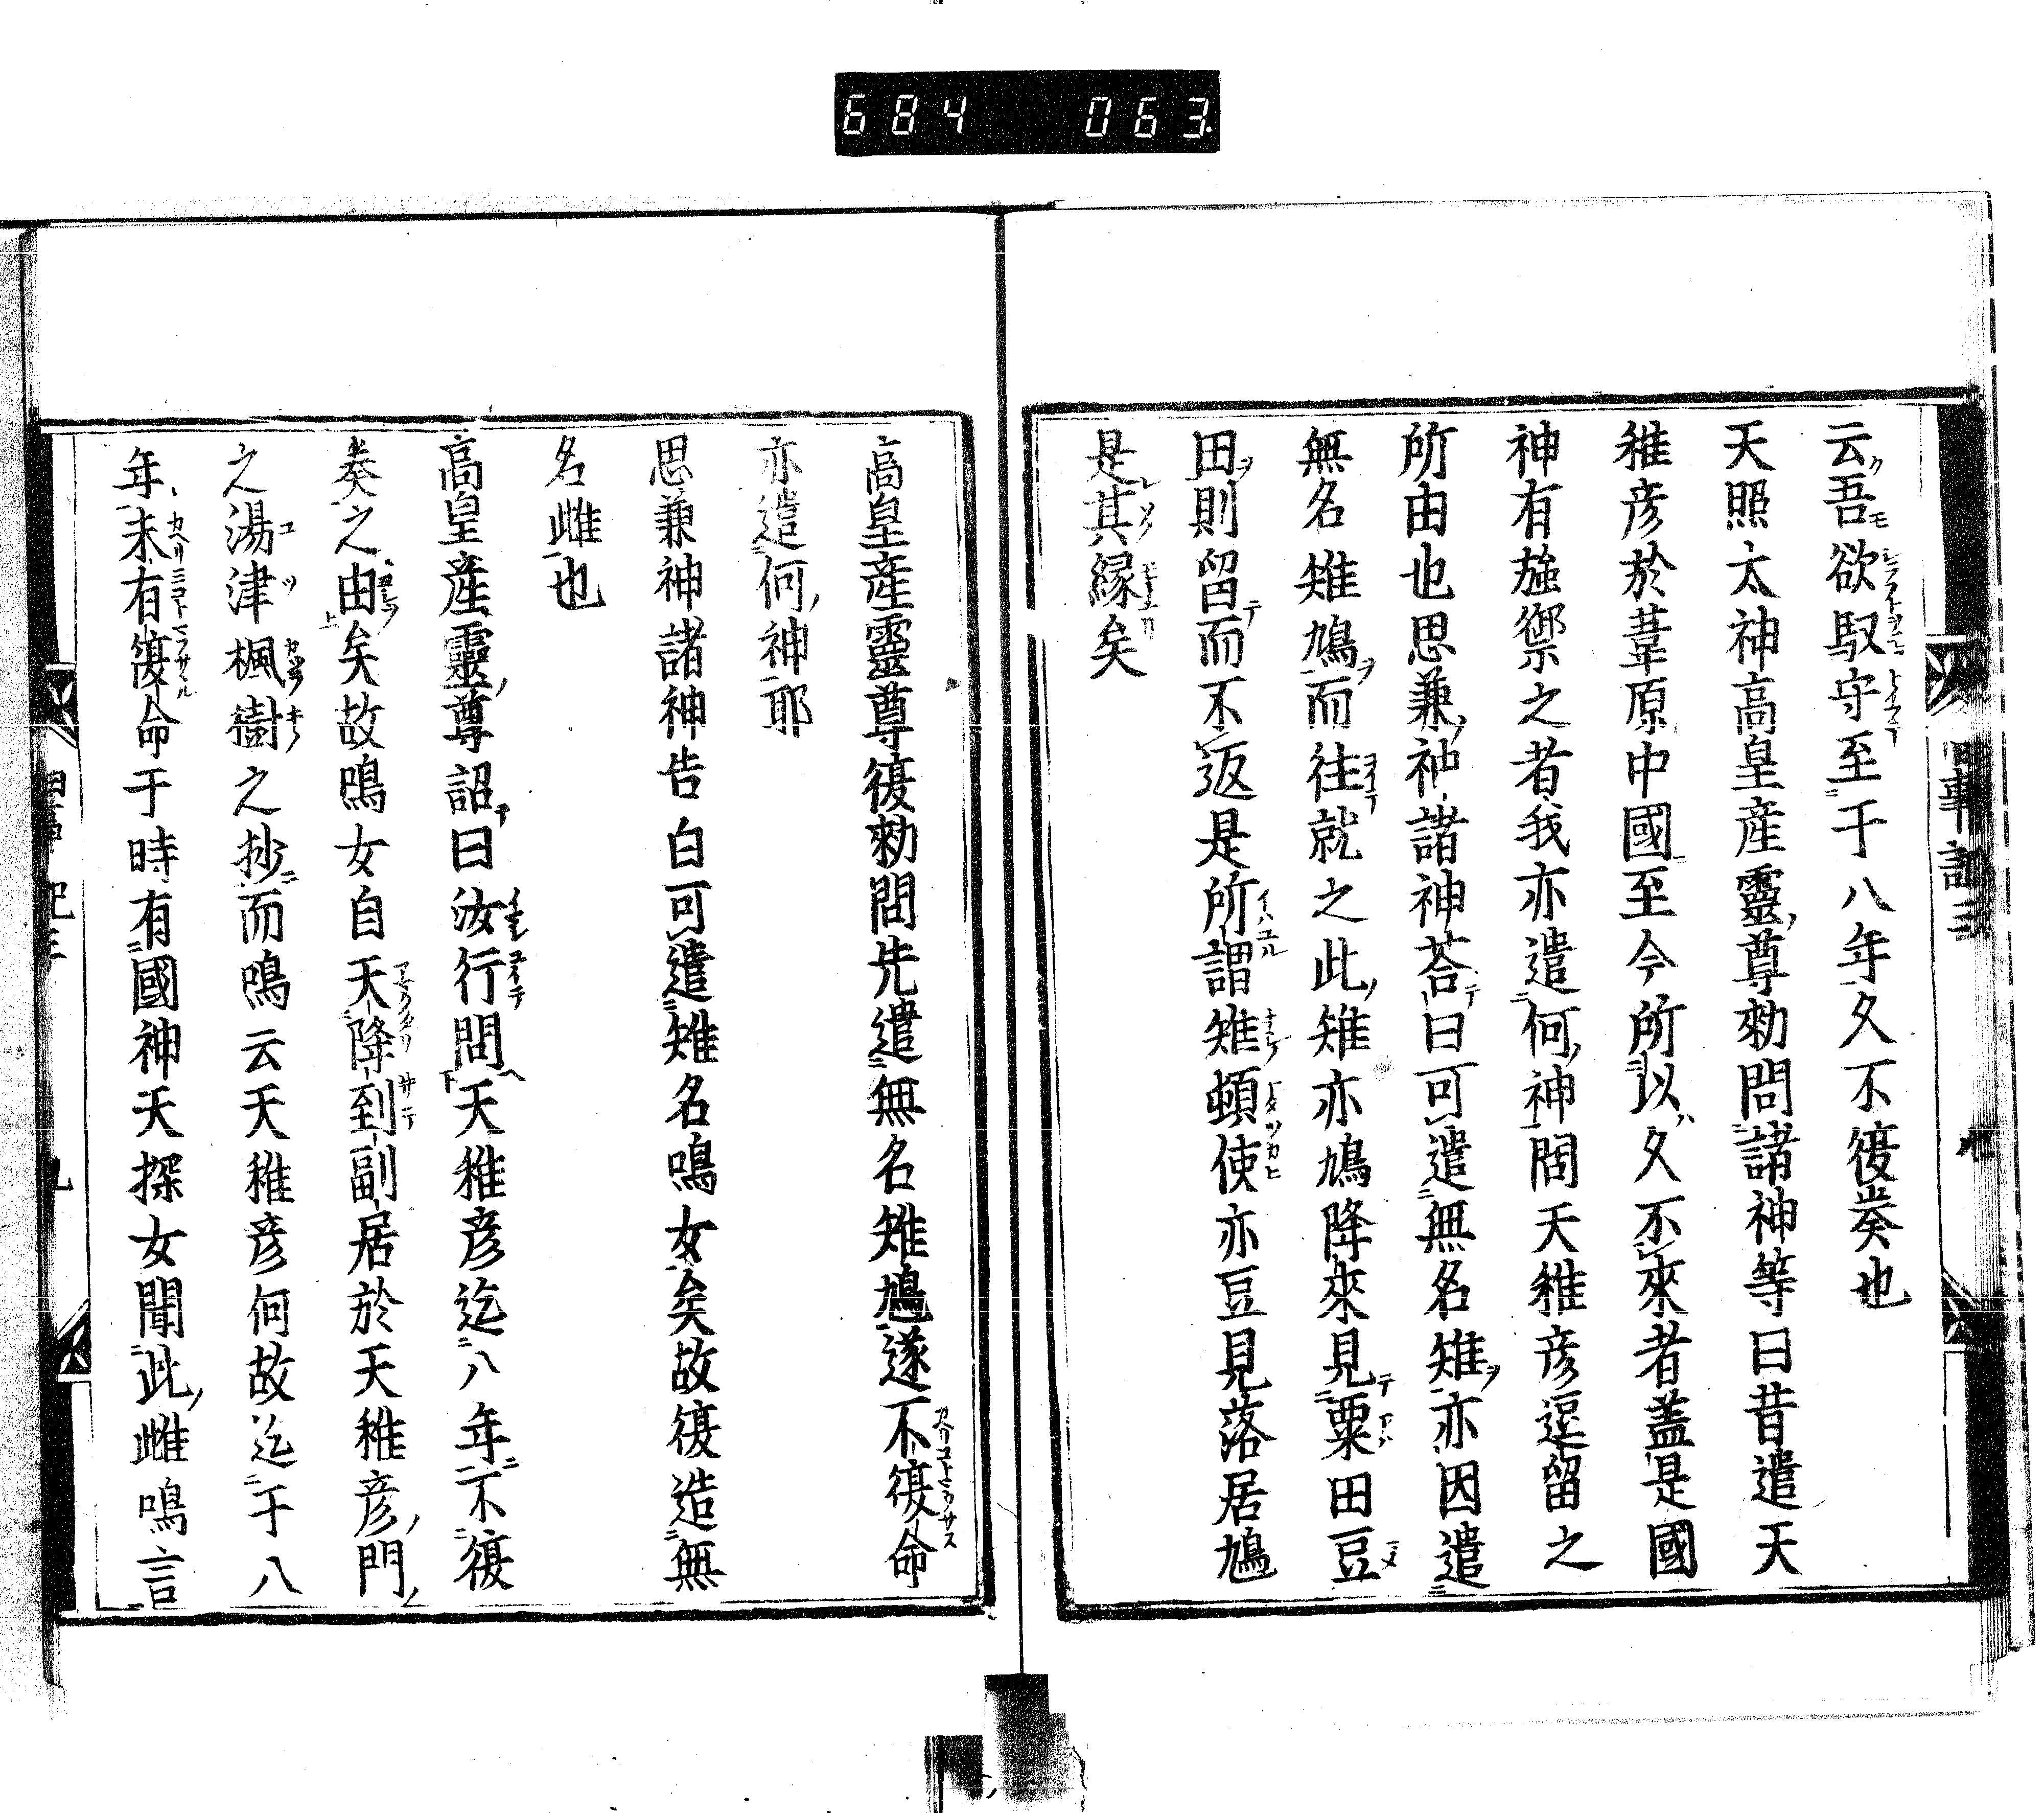 684 063
云吾欲馭守至于八年久不復奏也
天照太神高皇産靈尊勅問諸神等曰昔遣天
稚彦於葦原中國至今所以久不來者盖是國
神有強禦之者我亦遣何神問天稚彦逗留之
所由也思兼神諸神荅曰可遣無名雉亦因遣
無名雉鳩而往就之此雉亦鳩降來見粟田豆
田則留而不返是所謂雉頓使亦豆見落居鳩
是其縁矣
高皇産靈尊復勅問先遣無名雉鳩遂不復命
亦遣何神耶
思兼神諸神告白可遣雉名鳴女矣故復造無
名雌也
高皇産靈尊詔曰汝行問天稚彦迄八年不復
奏之由矣故鳴女自天降到副居於天稚彦門
之湯津楓樹之抄而鳴云天稚彦何故迄于八
年未有復命于時有國神天探女聞此雌鳴言